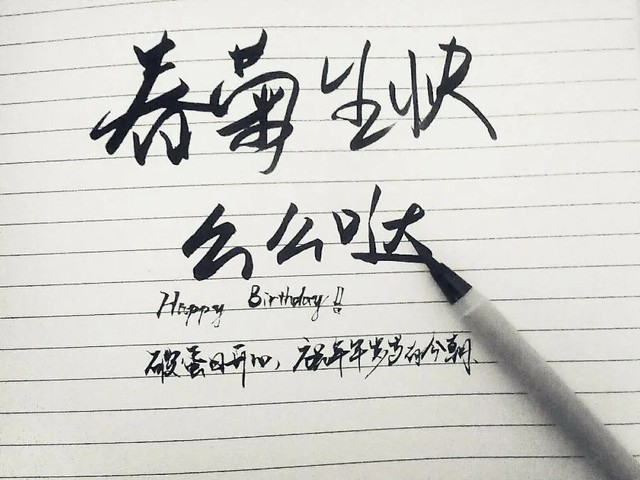 春菊生快
么么哒
Happy Birthday!!
破蛋日开心，愿年年岁岁有今朝、